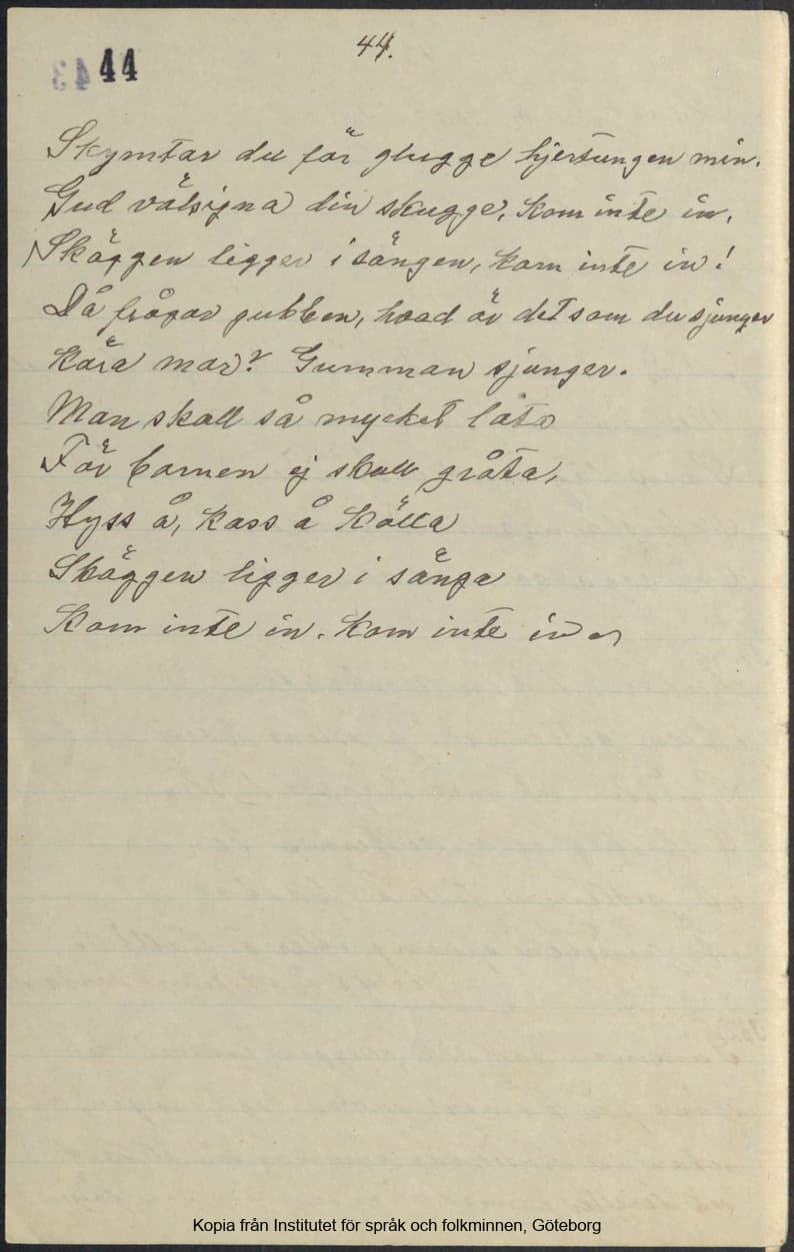 44 44.
Skymtar du för glugge hjertungen min.
Gud välsigna din skugge, kom inte in.
Skäggen ligger i sängen, kom inte in!
Då frågar gubben, hvad är det som du sjunger
kära mor? Gumman sjunger.
Man skall så mycket låta
För barnen ej skall gråta,
Hyss å, kass å källa
Skäggen ligger i sänga
Kom inte in. Kom inte in
Kopia från Institutet för språk och folkminnen, Göteborg